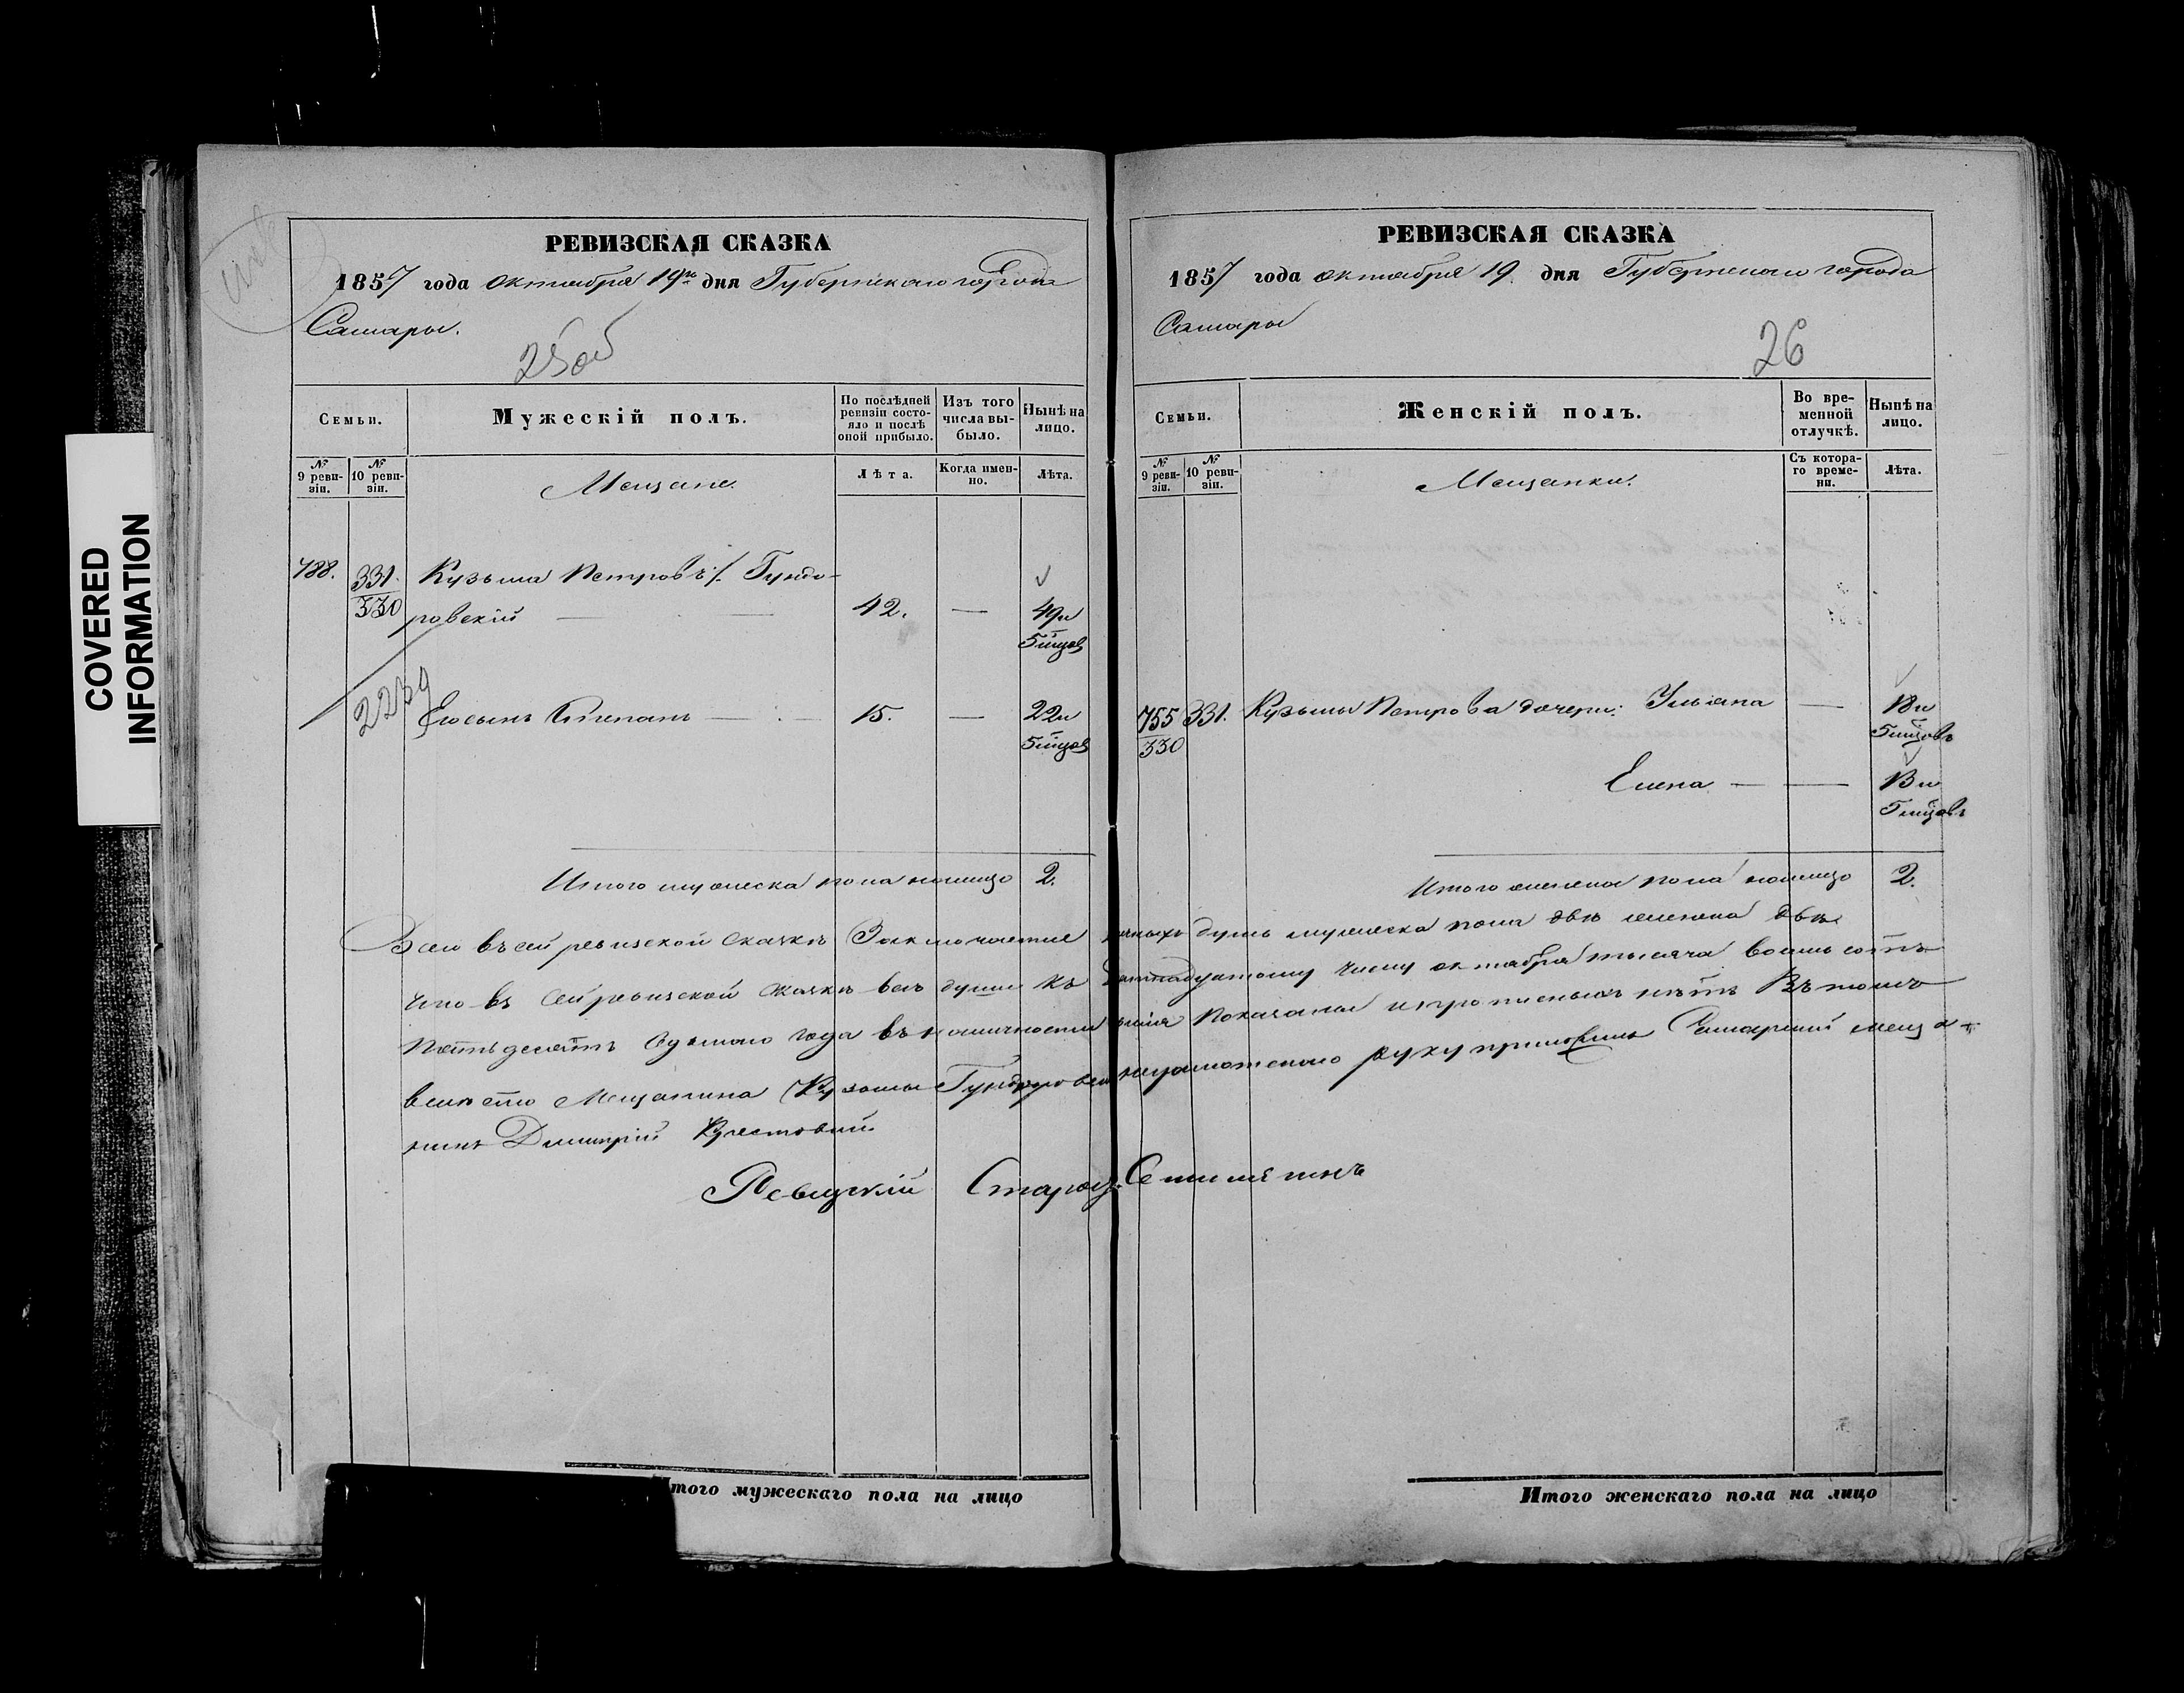 COVERED
INFORMATION
РЕВИЗСКАЯ СКАЗКА
1857 года октября 19го дня Губернскаго города
Самары.
25об
Семьи.
Мужескій полъ.
По послѣдней ревизіи состояло и послѣ оной прибыло.
Изъ того числа выбыло.
Нынѣ на лицо.
№ 9 ревизіи.
№ 10 ревизіи.
Мещане.
Лѣта.
Когда именно.
Лѣта.
788.
331.
330
Кузьма Петровъ /. Гундо-
ровскій
42.
—
49и
5 мцов
2239
Его сынъ Степанъ —
15.
—
22и
5 мцов
Итого мужеска пола налицо 2.
РЕВИЗСКАЯ СКАЗКА
1857 года октября 19 дня Губернскаго города
Самары
26
Семьи.
Женскій полъ.
Во временной отлучкѣ.
Нынѣ на лицо.
№ 9 ревизіи.
№ 10 ревизіи.
Мещанки.
Съ котораго времени.
Лѣта.
755
330
331.
Кузьмы Петрова дочери: Ульяна —
18и
5 мцовъ
Елена — —
13и
5 мцовъ
Итого женска пола налицо 2.
Всего въ сей ревизской сказкѣ Заключается личныхъ душъ мужеска пола двѣ женска двѣ
что въ Сей ревизской сказкѣ всѣ души къ число октября тысяча восемь сотъ
Пятьдесятъ Седьмаго года въ наличности Показаны и прописныхъ нѣтъ Въ томъ
вмѣсто Мещанина Кузьмы Гундоровскаго неграмотнаго руку приложилъ Самарский меща-
нинъ Димитрій
Ревизскій Старо
Итого мужескаго пола на лицо
Итого женскаго пола на лицо